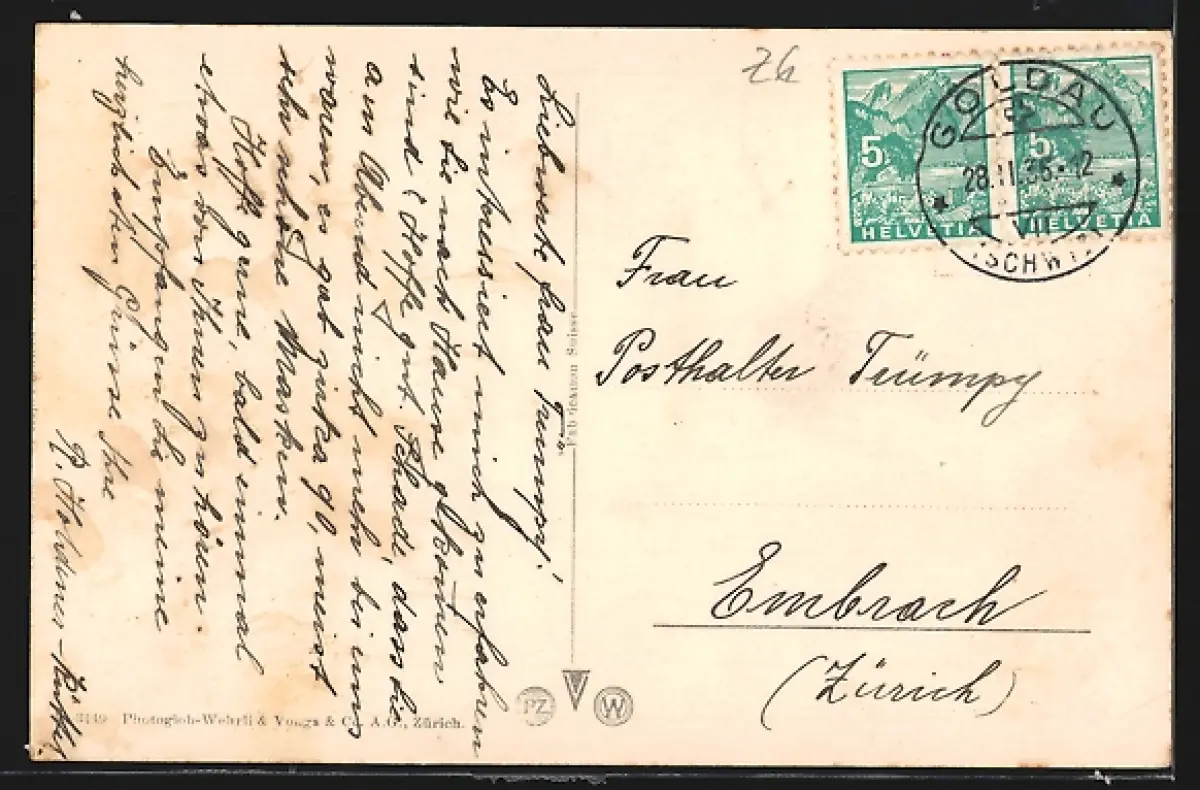 Liebwerte Frau Trümpi!
Es intressiert mich zu erfahren
wie Sie nach Hause gekommen
sind (Hoffe gut. Schade, dass Sie
am Abend nicht mehr bei uns
waren, es gab zirka 90, meist
sehr schöne Masken.
Hoffe gerne, bald einmal
etwas von Ihnen zu hören.
Empfangen Sie meine
herzlichsten Grüsse Ihre
R. Holdener-
Fabrication Suisse
3149 Photoglob-Wehrli & Vouga & Co. A.G., Zürich.
PZ W
Z6
5 HELVETIA
5 HELVETIA
GOLDAU
28.II.36-12
VII
(SCHWYZ)
Frau
Posthalter Trümpy
Embrach
(Zürich)